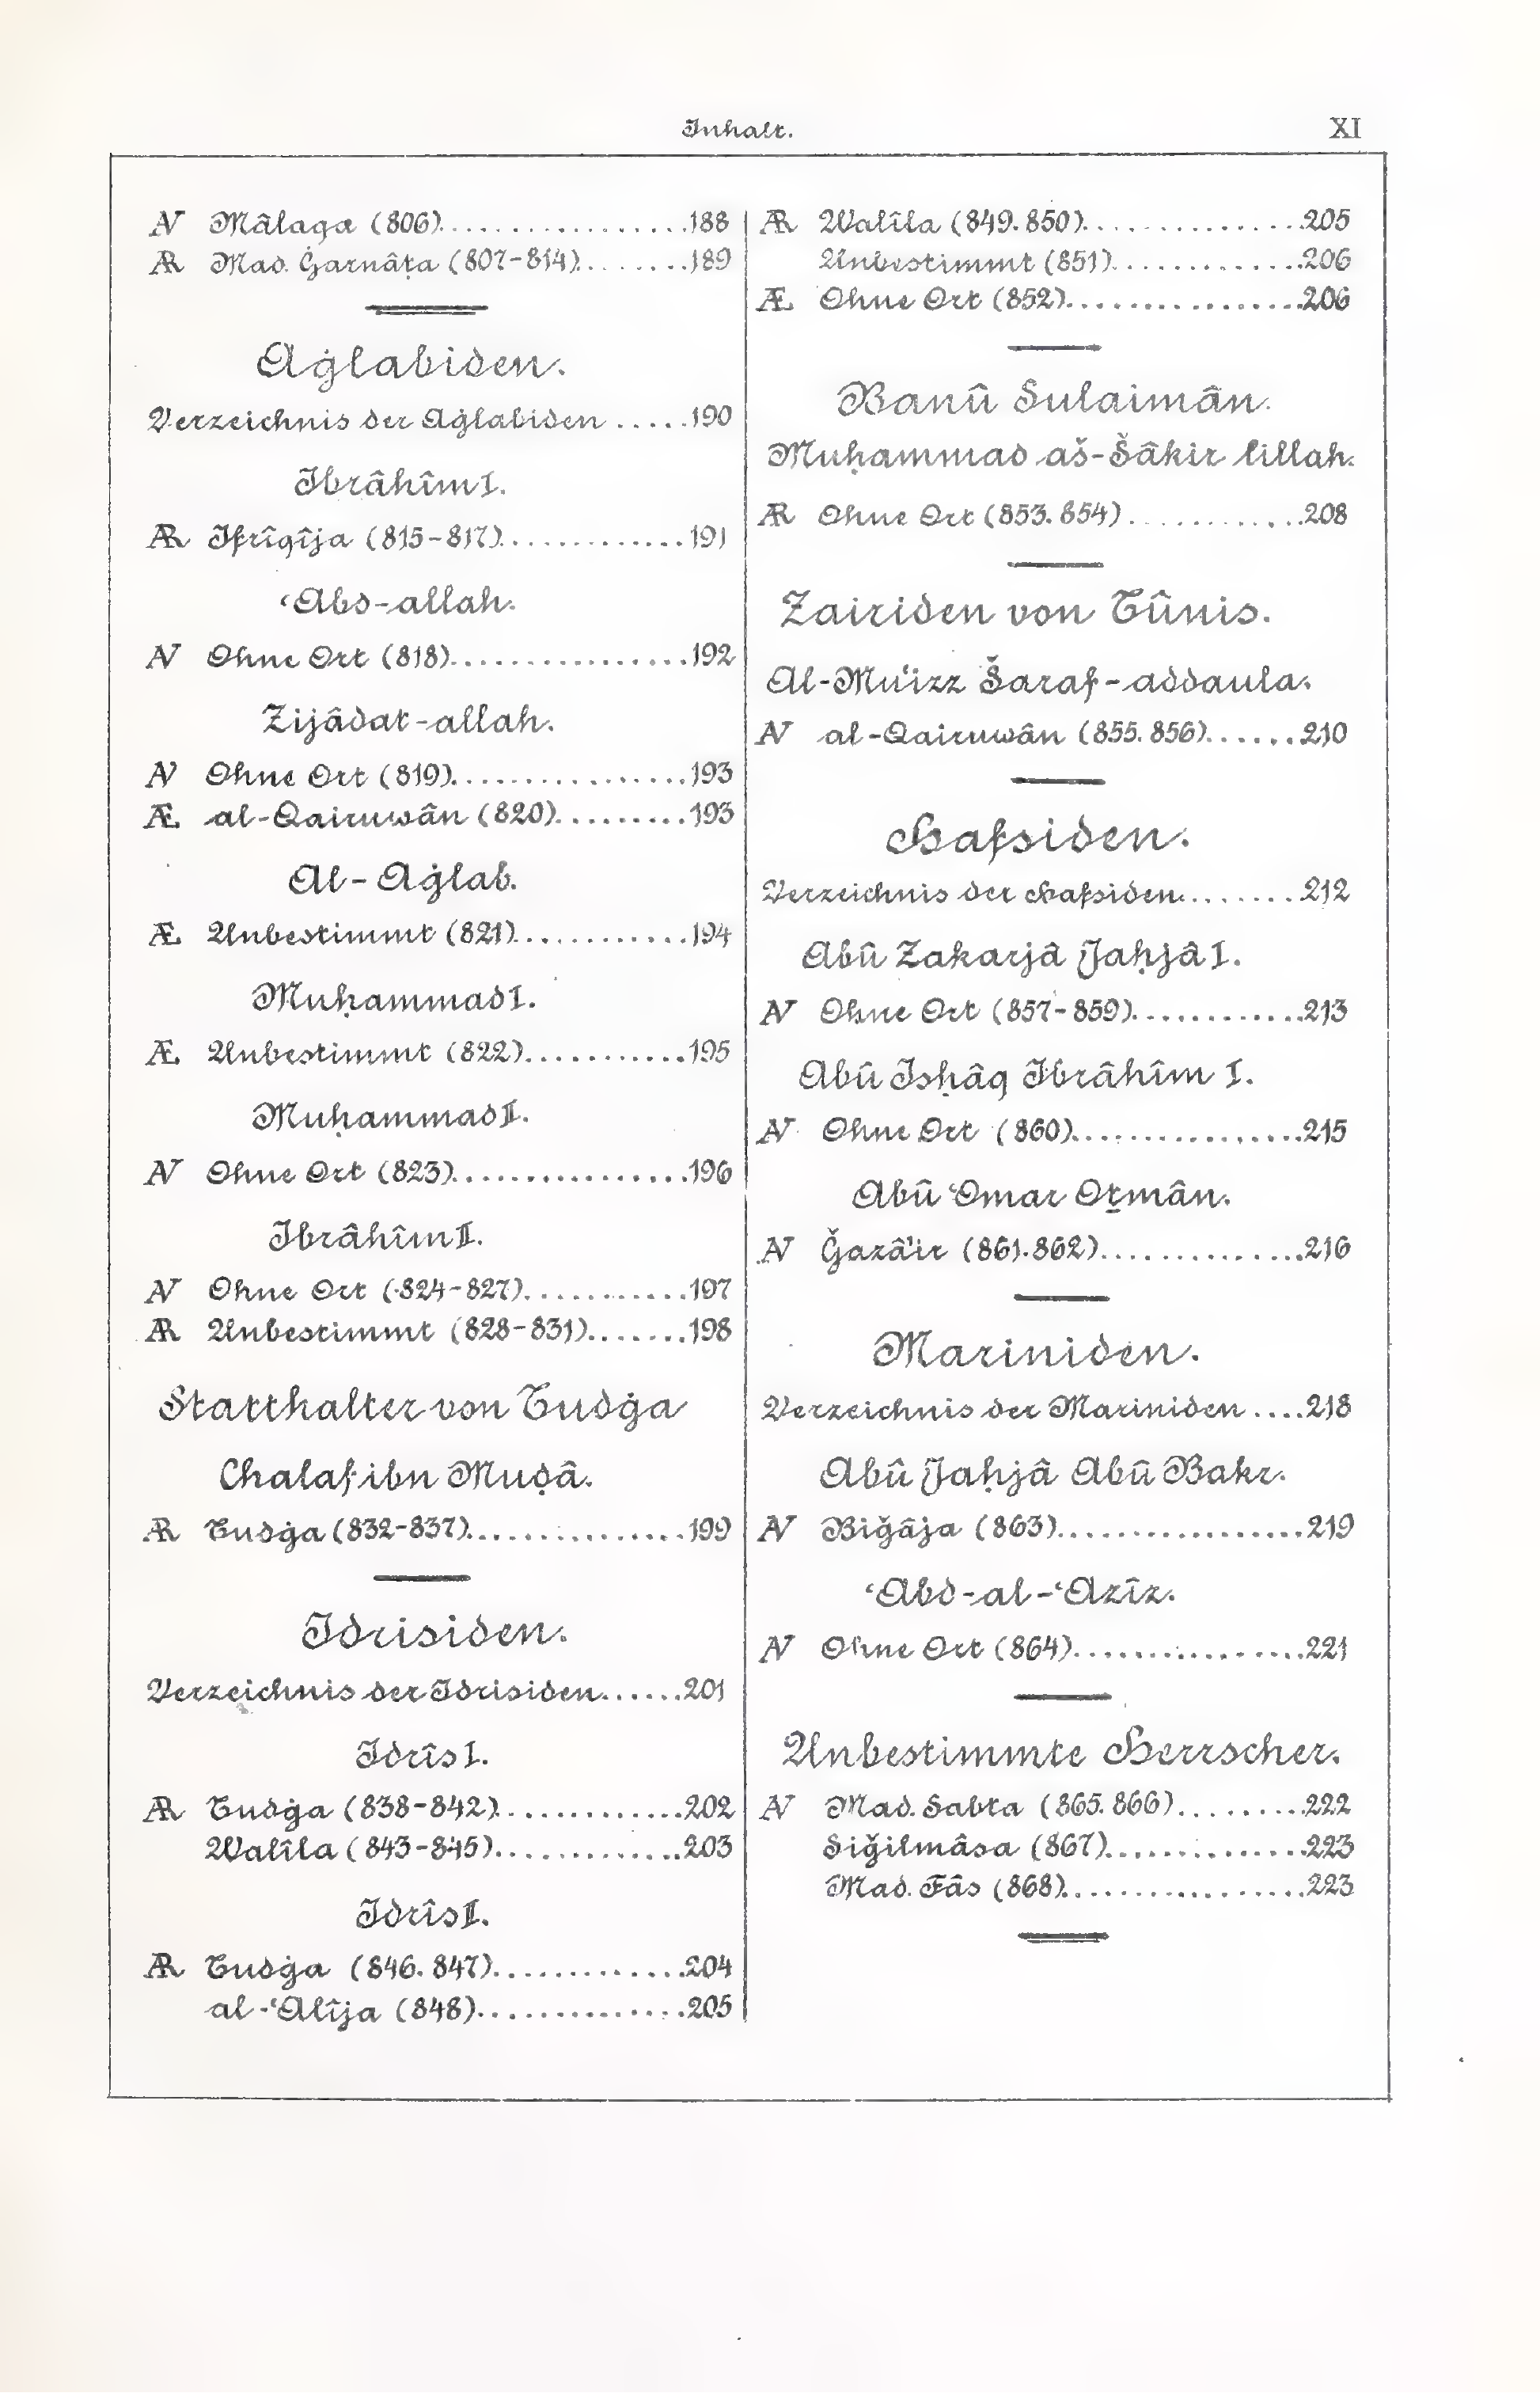 Inhalt.
XI
AV Mâlaqa (806)..................188
AR Mad. Ġarnâṭa (807-814)........189
Aġlabiden.
Verzeichnis der Aġlabiden .....190
Ibrâhîm I.
AR Ifrîqîja (815-817)..............191
ʿAbd-allah.
AV Ohne Ort (818)..................192
Zijâdat-allah.
AV Ohne Ort (819)..................193
Æ al-Qairuwân (820)..........193
Al-Aġlab.
Æ Unbestimmt (821).............194
Muḥammad I.
Æ Unbestimmt (822)............195
Muḥammad II.
AV Ohne Ort (823)..................196
Ibrâhîm II.
AV Ohne Ort (824-827).............197
AR Unbestimmt (828-831)........198
Statthalter von Tudġa
Chalaf ibn Muḍâ.
AR Tudġa (832-837)................199
Idrisiden.
Verzeichnis der Idrisiden.......201
Idrîs I.
AR Tudġa (838-842)..............202
Walîla (843-845)..............203
Idrîs II.
AR Tudġa (846. 847)..............204
al-ʿAlîja (848)................205
AR Walîla (849. 850)................205
Unbestimmt (851)..............206
Æ Ohne Ort (852)..................206
Banû Sulaimân.
Muḥammad aš-Šâkir lillah.
AR Ohne Ort (853. 854).............208
Zairiden von Tûnis.
Al-Muʿizz Šaraf-addaula.
AV al-Qairuwân (855. 856).......210
Hafsiden.
Verzeichnis der Hafsiden.........212
Abû Zakarjâ Jaḥjâ I.
AV Ohne Ort (857-859).............213
Abû Isḥâq Ibrâhîm I.
AV Ohne Ort (860).................215
Abû ʿOmar Oṯmân.
AV Ǧazâʾir (861. 862)...............216
Mariniden.
Verzeichnis der Mariniden ....218
Abû Jaḥjâ Abû Bakr.
AV Biǧâja (863)...................219
ʿAbd-al-ʿAzîz.
AV Ohne Ort (864)..................221
Unbestimmte Herrscher.
AV Mad. Sabta (865. 866).........222
Siǧilmâsa (867)...............223
Mad. Fâs (868)..................223